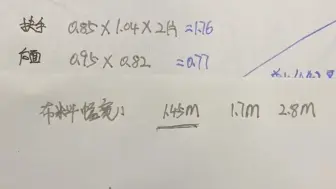 扶手 0.85×1.04×2片=1.76
后面 0.95×0.82 =0.77
布料幅宽: 1.45m 1.7m 2.8m